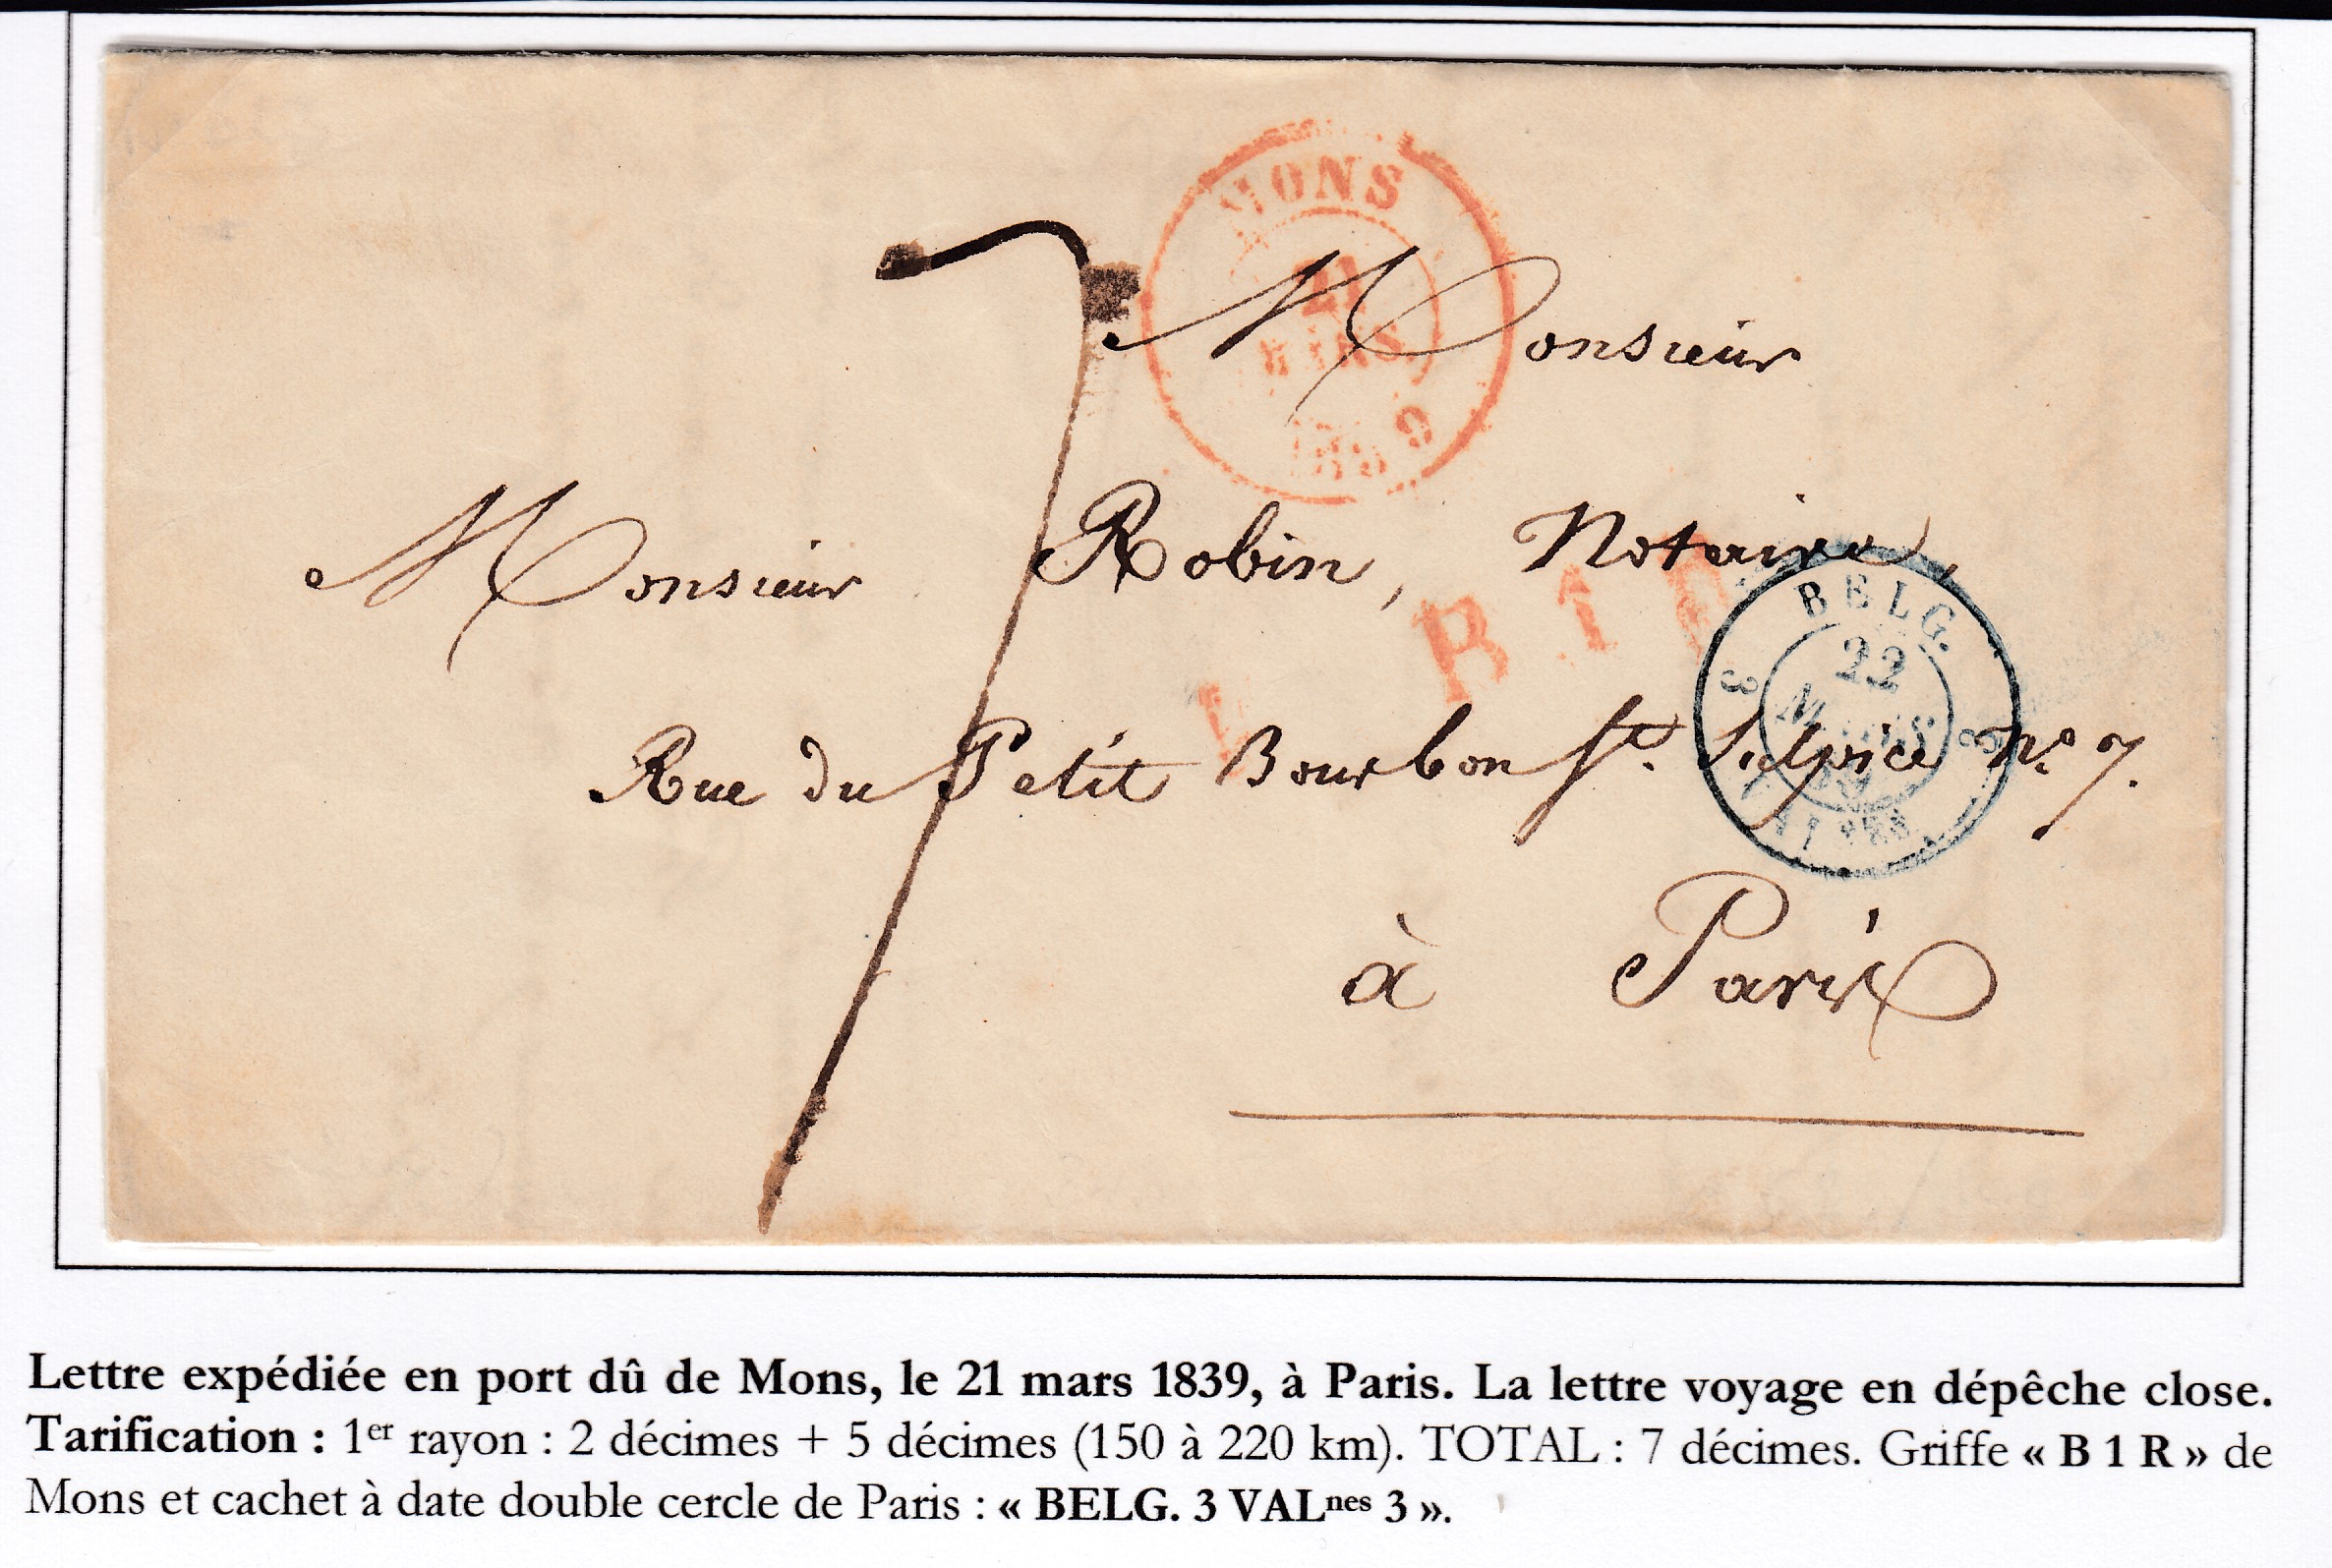 MONS
21
MARS
1839
Monsieur
Monsieur Robin, Notaire,
B 1 R
BELG.
22
MARS
39
3 3
VALnes
Rue du Petit Bourbon St. Sulpice No 7.
à Paris
7
Lettre expédiée en port dû de Mons, le 21 mars 1839, à Paris. La lettre voyage en dépêche close.
Tarification : 1er rayon : 2 décimes + 5 décimes (150 à 220 km). TOTAL : 7 décimes. Griffe « B 1 R » de
Mons et cachet à date double cercle de Paris : « BELG. 3 VALnes 3 ».